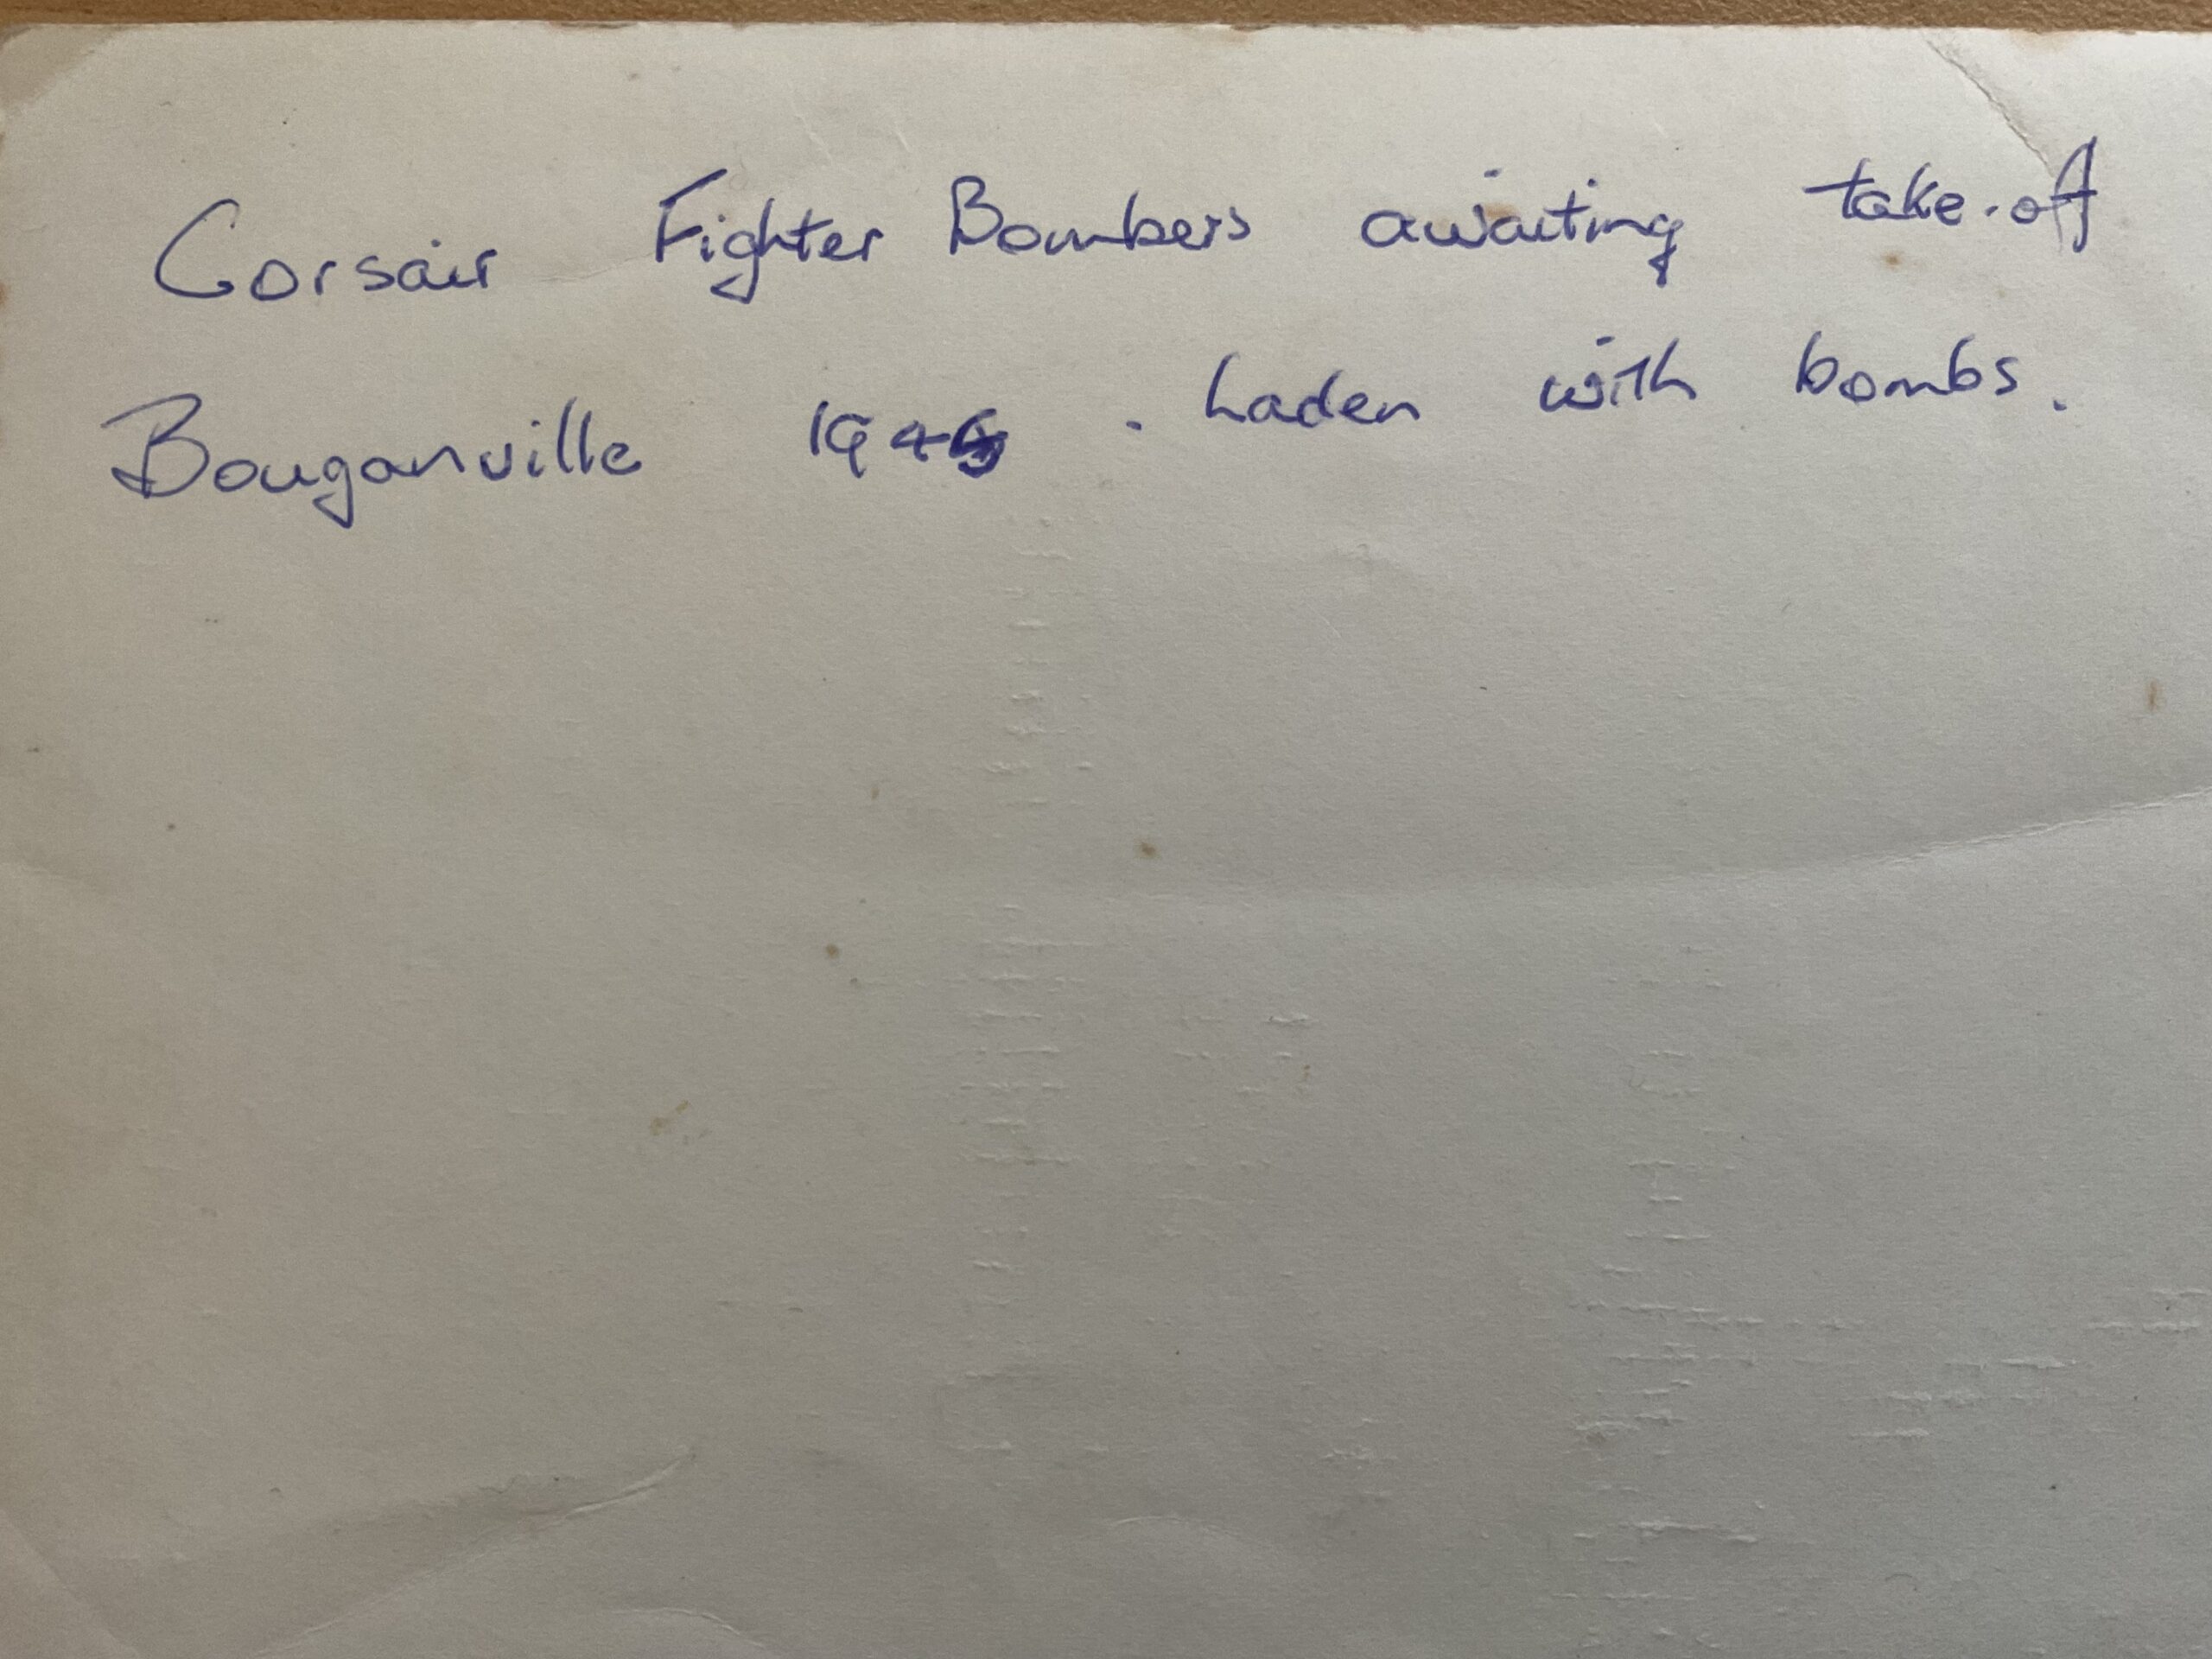 Corsair Fighter Bombers awaiting take-off
Bouganville 1945. Laden with bombs.